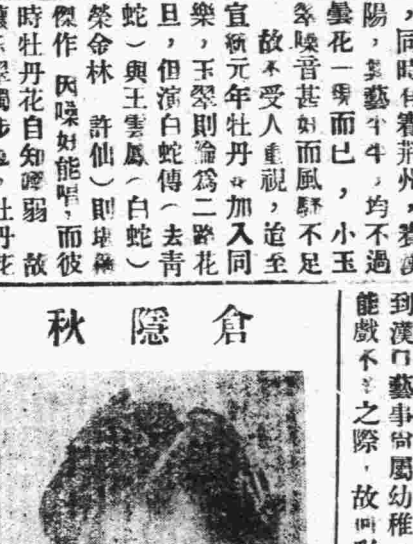 ，同時在荊州，
陽，藝平平，均不過
曇花一現而已，小玉
翠噪音甚好而風騷不足
故不受人重視，迨至
宣統元年牡丹花加入同
樂，玉翠則淪為二路花
旦，但演白蛇傳（去青
蛇）與王雲鳳（白蛇）
榮金林 許仙）則堪稱
傑作 因嗓好能唱，而彼
時牡丹花自知嗓弱 故
到漢口藝事尚屬幼稚
能戲不之際，故
倉隱秋